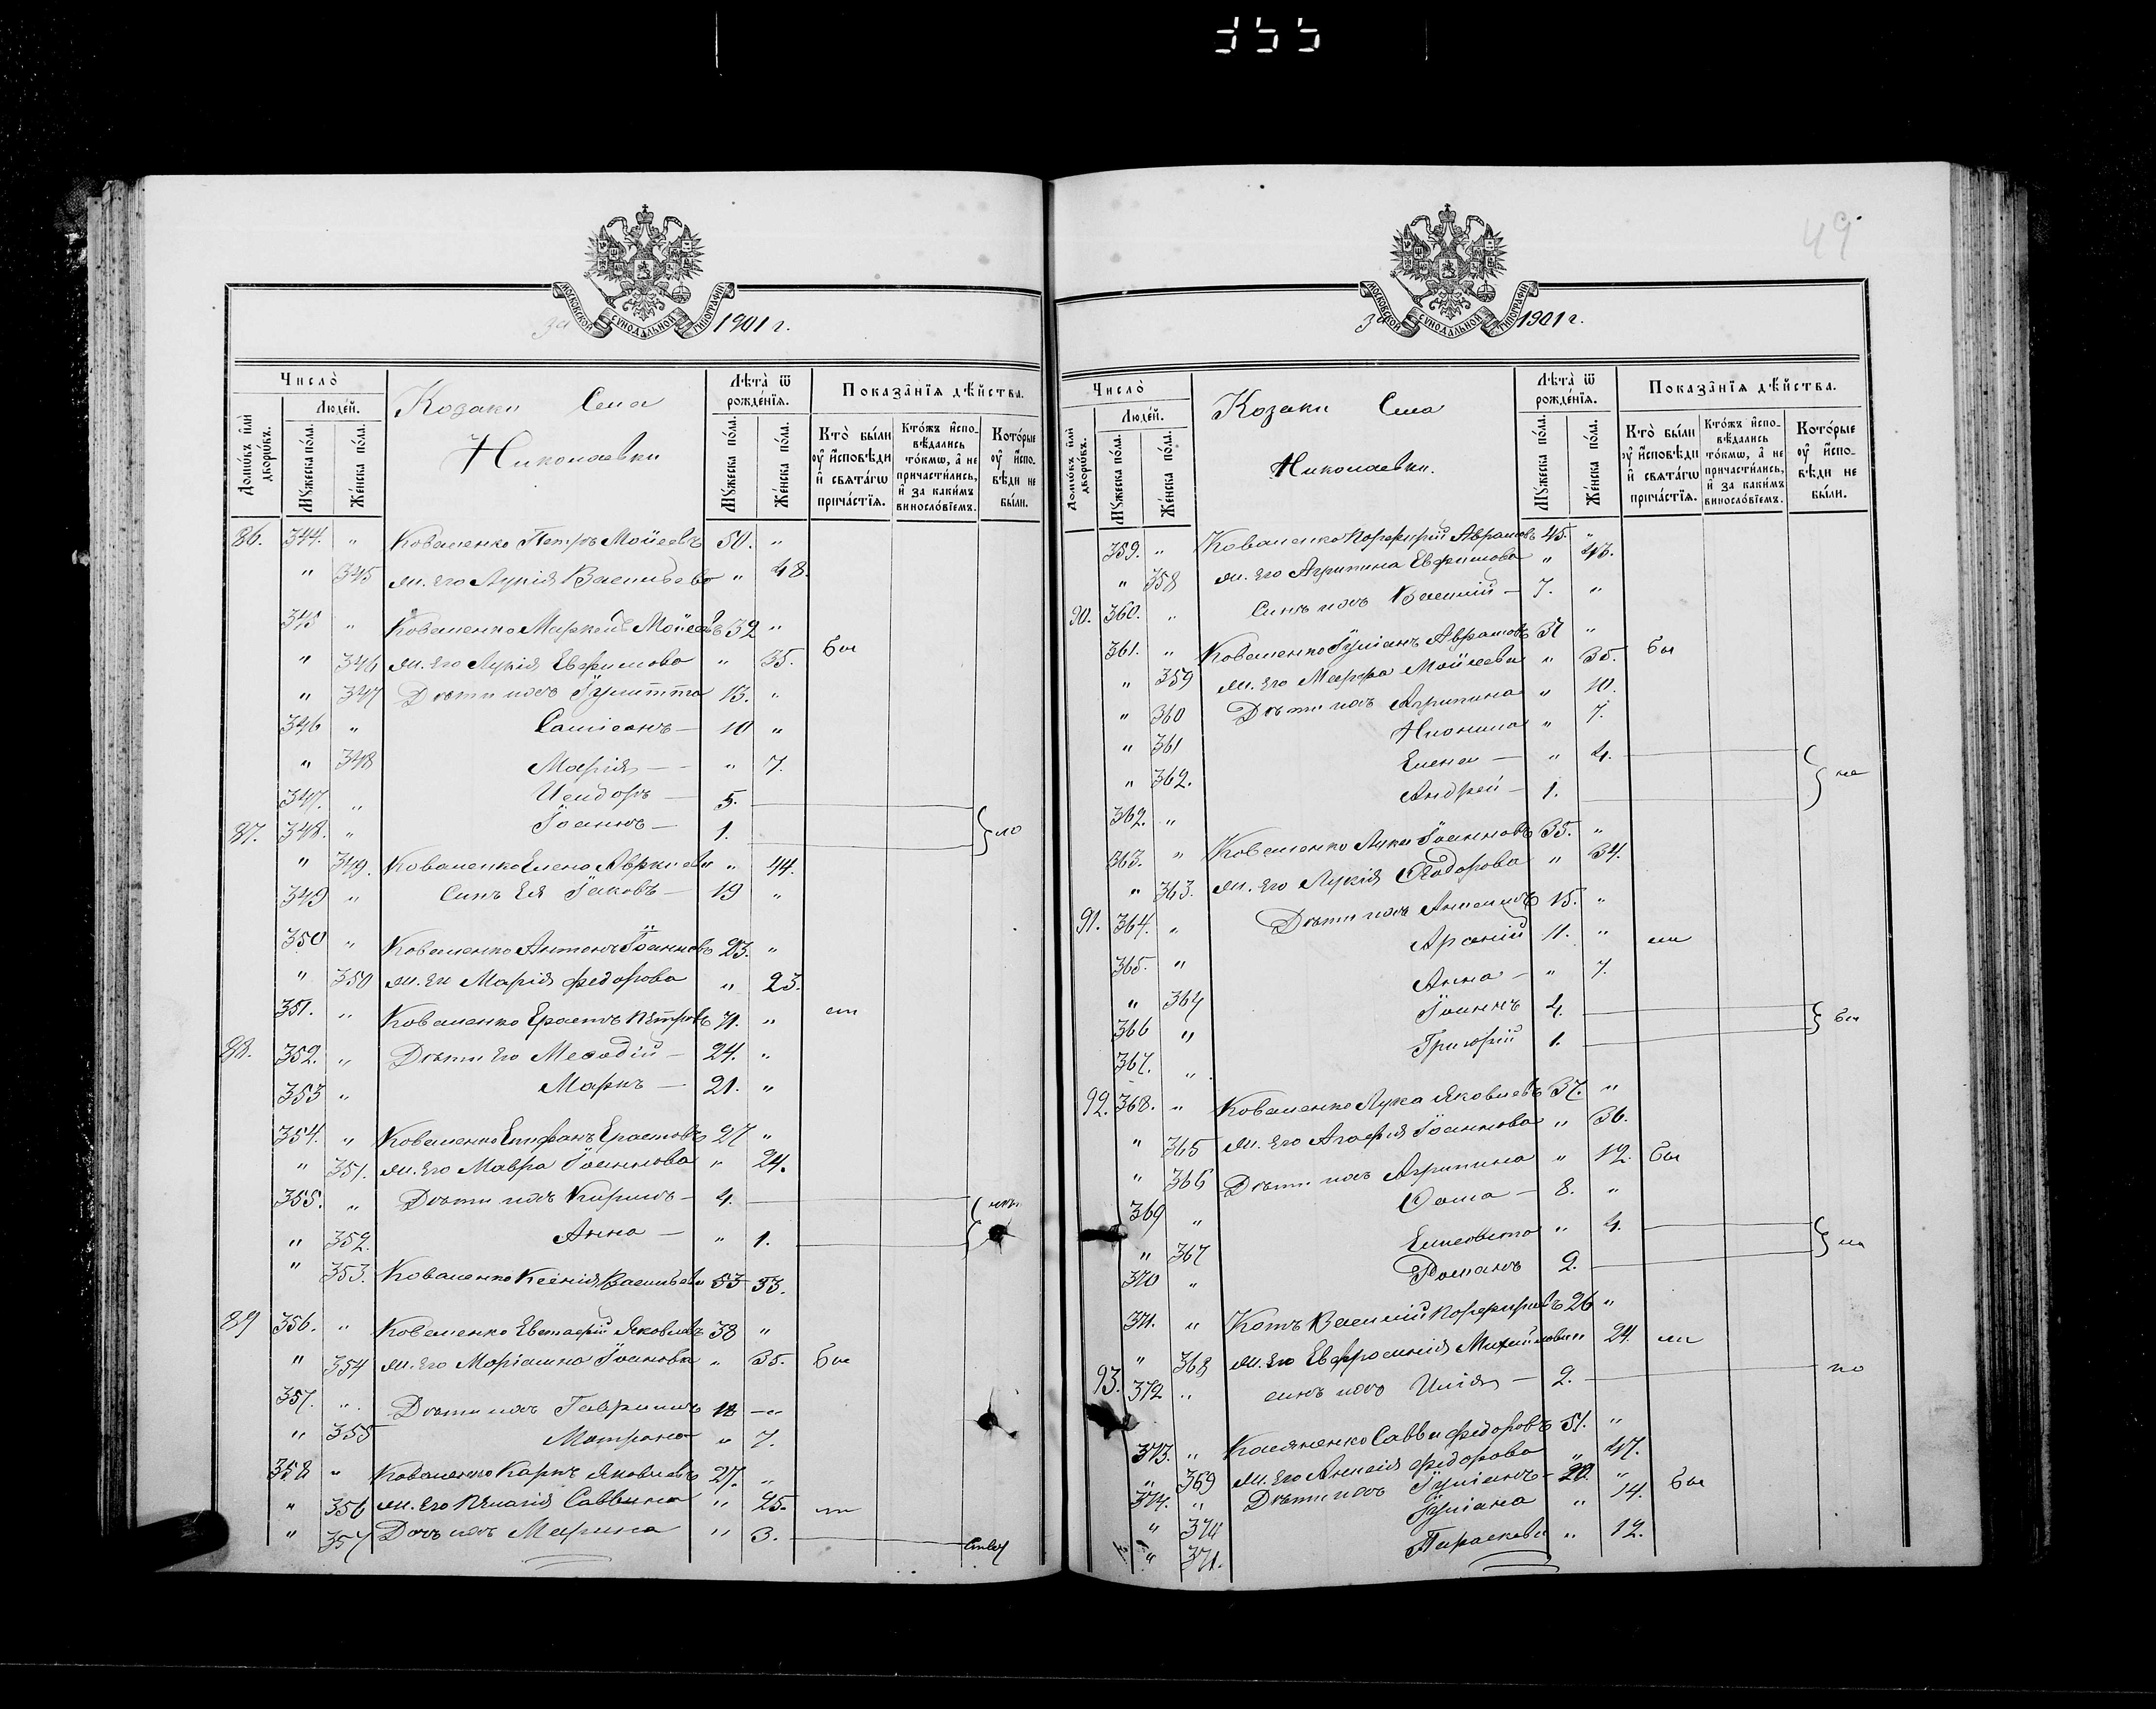 355
49
МОСКОВСКОЙ СУНОДАЛЬНОЙ ТИПОГРАФІИ
за 1901 г.
Число̀
Домѡ́въ и҆лѝ дворѡ́въ.
Люде́й.
Мꙋ́жеска по́ла.
Же́нска по́ла.
Козаки Села
Николаевки
Лѣта̀ ѿ рожде́нїѧ.
Мꙋ́жеска по́ла.
Же́нска по́ла.
Показа̑нїѧ дѣ́йства.
Кто̀ бы́ли ᲂу҆ и҆сповѣ́ди и҆ свѧта́гѡ прича́стїѧ.
Кто́жъ и҆сповѣ́дались то́кмѡ, а҆ не причасти́лись, и҆ за каки́мъ винословїемъ.
Кото́рые ᲂу҆ и҆сповѣ́ди не бы́ли.
86. 344. " Коваленко Петръ Моѵсеевъ 50. "
" 345 ж. его Лукія Васильева " 48.
345 " Коваленко Маркелъ Моѵсеевъ 39 "
" 346 ж. его Лукія Ефимова " 35. был
" 347 Дѣти ихъ Іулитта 13. "
346 " 10 "
" 348 Марія — " 7.
347. " Исидоръ — 5.
87. 348. " Іоаннъ — 1.
" 349. Коваленко Елена " 44.
349 " Сынъ ея Іаковъ — 19 "
350 " Коваленко Антонъ Іоанновъ 23. "
" 350 ж. его Марія Федорова " 23.
351. " Коваленко Ерастъ Петровъ 71. "
88. 352. " Дѣти его Меѳодій — 24. "
353 " Маркъ — 21. "
354. " Коваленко Епифанъ Ерастовъ 27 "
" 351. ж. его Мавра Іоаннова " 24.
355. " Дѣти ихъ Кириллъ — 4.
" 352. Анна — " 1.
" 353. Коваленко Ксенія Васильева 53 53.
89 356. " Коваленко Евстафій Яковлевъ 38 "
" 354 ж. его Маріамна Іоанова " 35. был
357. " Дѣти ихъ Гавріилъ — "
" 355 Матрона " 7.
358 " Коваленко Карпъ Яковлевъ 27. "
" 356 ж. его Пелагія Саввина " 25.
" 357 Дочь ихъ Марина " 3.
МОСКОВСКОЙ СУНОДАЛЬНОЙ ТИПОГРАФІИ
за 1901 г.
Число̀
Домѡ́въ и҆лѝ дворѡ́въ.
Люде́й.
Мꙋ́жеска по́ла.
Же́нска по́ла.
Козаки Села
Николаевки.
Лѣта̀ ѿ рожде́нїѧ.
Мꙋ́жеска по́ла.
Же́нска по́ла.
Показа̑нїѧ дѣ́йства.
Кто̀ бы́ли ᲂу҆ и҆сповѣ́ди и҆ свѧта́гѡ прича́стїѧ.
Кто́жъ и҆сповѣ́дались то́кмѡ, а҆ не причасти́лись, и҆ за каки́мъ винословїемъ.
Кото́рые ᲂу҆ и҆сповѣ́ди не бы́ли.
359. " Коваленко Порфирій Аврамовъ 45. "
" 358 ж. его Агрипина Евфимова " 43.
90. 360. " Сынъ ихъ Василій — 7. "
361. " Коваленко Іуліанъ Аврамовъ 37 "
" 359 ж. его Марфа Моѵсеева " 35. был
" 360 Дѣти ихъ Агрипина " 10.
" 361 Неонила " 7.
" 362. Елена — " 4.
362. " Андрей — 1.
363. " Коваленко Лука Іоанновъ 35. "
" 363. ж. его Лукія Ѳеодорова " 34.
91. 364. " Дѣти ихъ 15. "
365. " Арсеній 11. "
" 364 Анна — " 7.
366 " Іоаннъ 4.
367. " Григорій 1.
92. 368. " Коваленко Лука Яковлевъ 37. "
" 365 ж. его Агафія Іоаннова " 36.
" 366 Дѣти ихъ Агрипина " 12. был
369 " Ѳома — 8. "
" 367 Елисавета " 4.
370 " Романъ 2.
371. " Котъ Василій Порфиріевъ 26 "
" 368 ж. его Евфросинія Михайловна " 24.
93. 372 " сынъ ихъ Илія — 2.
373. " Касяненко Савва Федоровъ 51. "
" 369 ж. его Федорова " 47.
374. " Дѣти ихъ Іуліанъ — 20. "
" 370 Іуліана " 14. был
" 371. Параскева " 12.